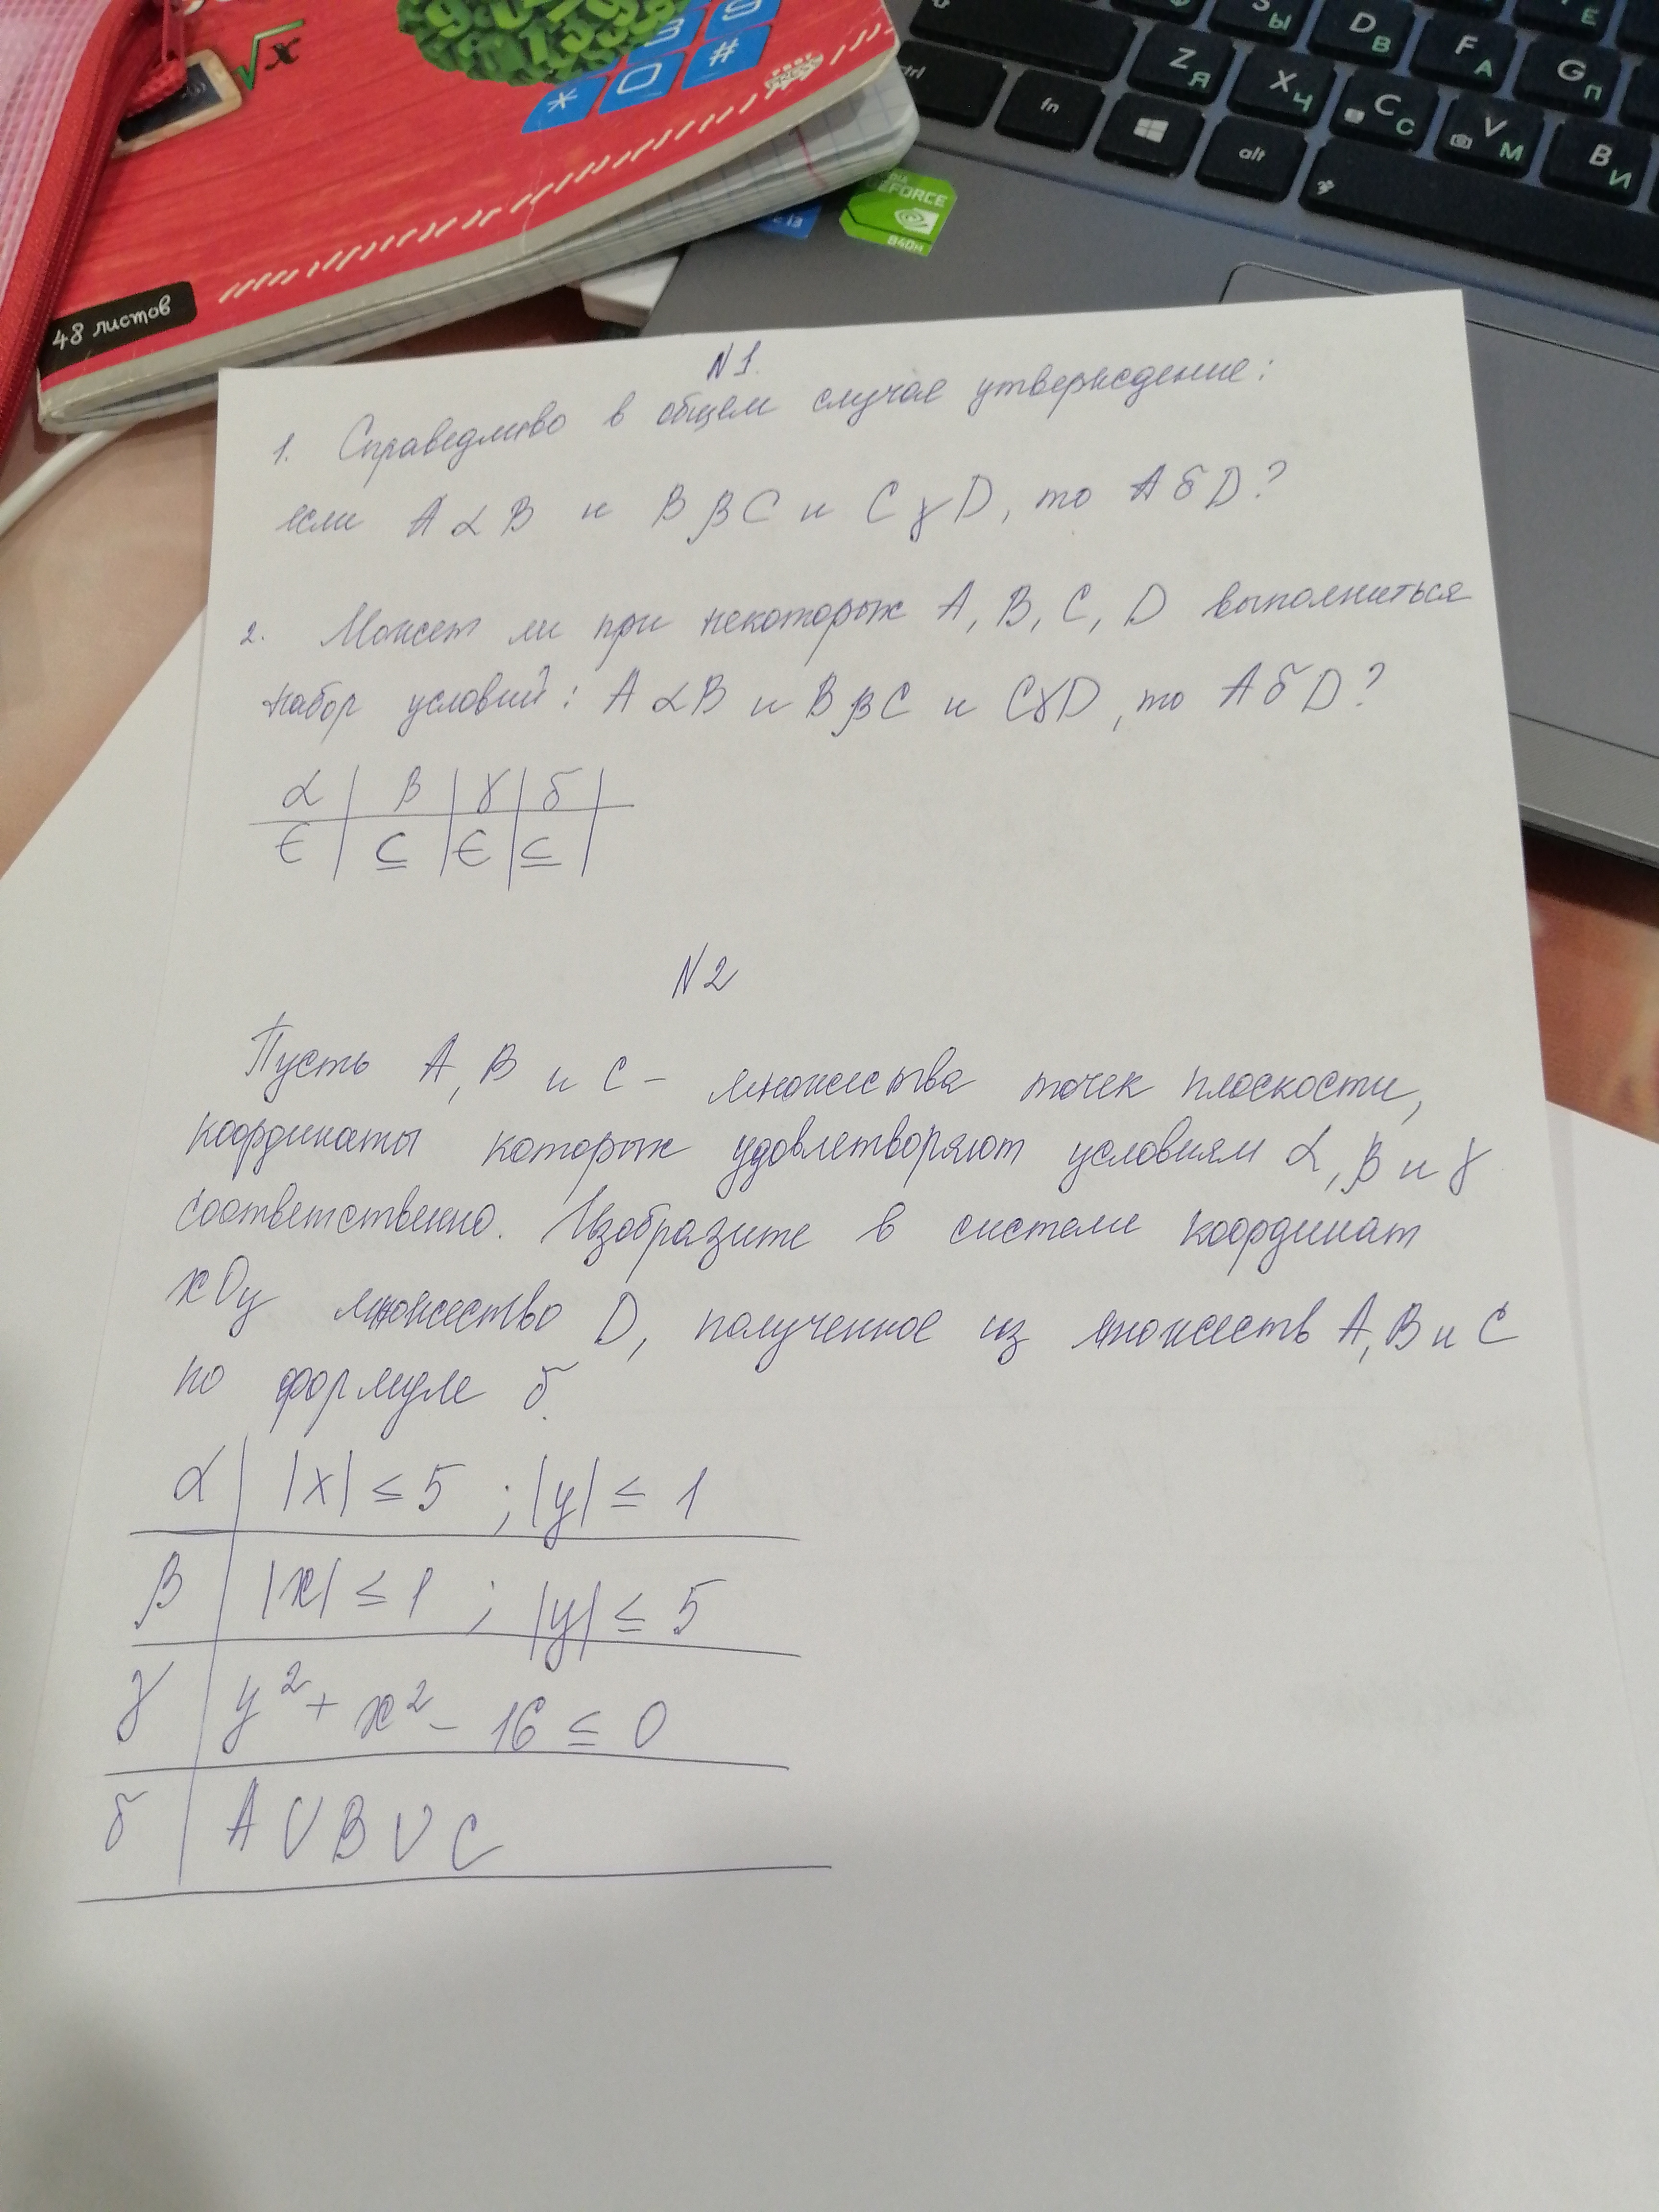 √x
* 0 #
3 9
48 листов
Ctrl fn alt
Z Я X Ч C С V М B И
Ы D В F А G П Е
GEFORCE
840M
N 1.
1. Справедливо в общем случае утверждение:
если A α B и B β C и C γ D, то A δ D?
2. Может ли при некоторых A, B, C, D выполниться
набор условий: A α B и B β C и C γ D, то A δ D?
α | β | γ | δ |
∈ | ⊆ | ∈ | ⊆ |
N 2
Пусть A, B и C – множества точек плоскости,
координаты которых удовлетворяют условиям α, β и γ
соответственно. Изобразите в системе координат
xOy множество D, полученное из множеств A, B и C
по формуле δ.
α | |x| ≤ 5 ; |y| ≤ 1
β | |x| ≤ 1 ; |y| ≤ 5
γ | y² + x² – 16 ≤ 0
δ | A ∪ B ∪ C